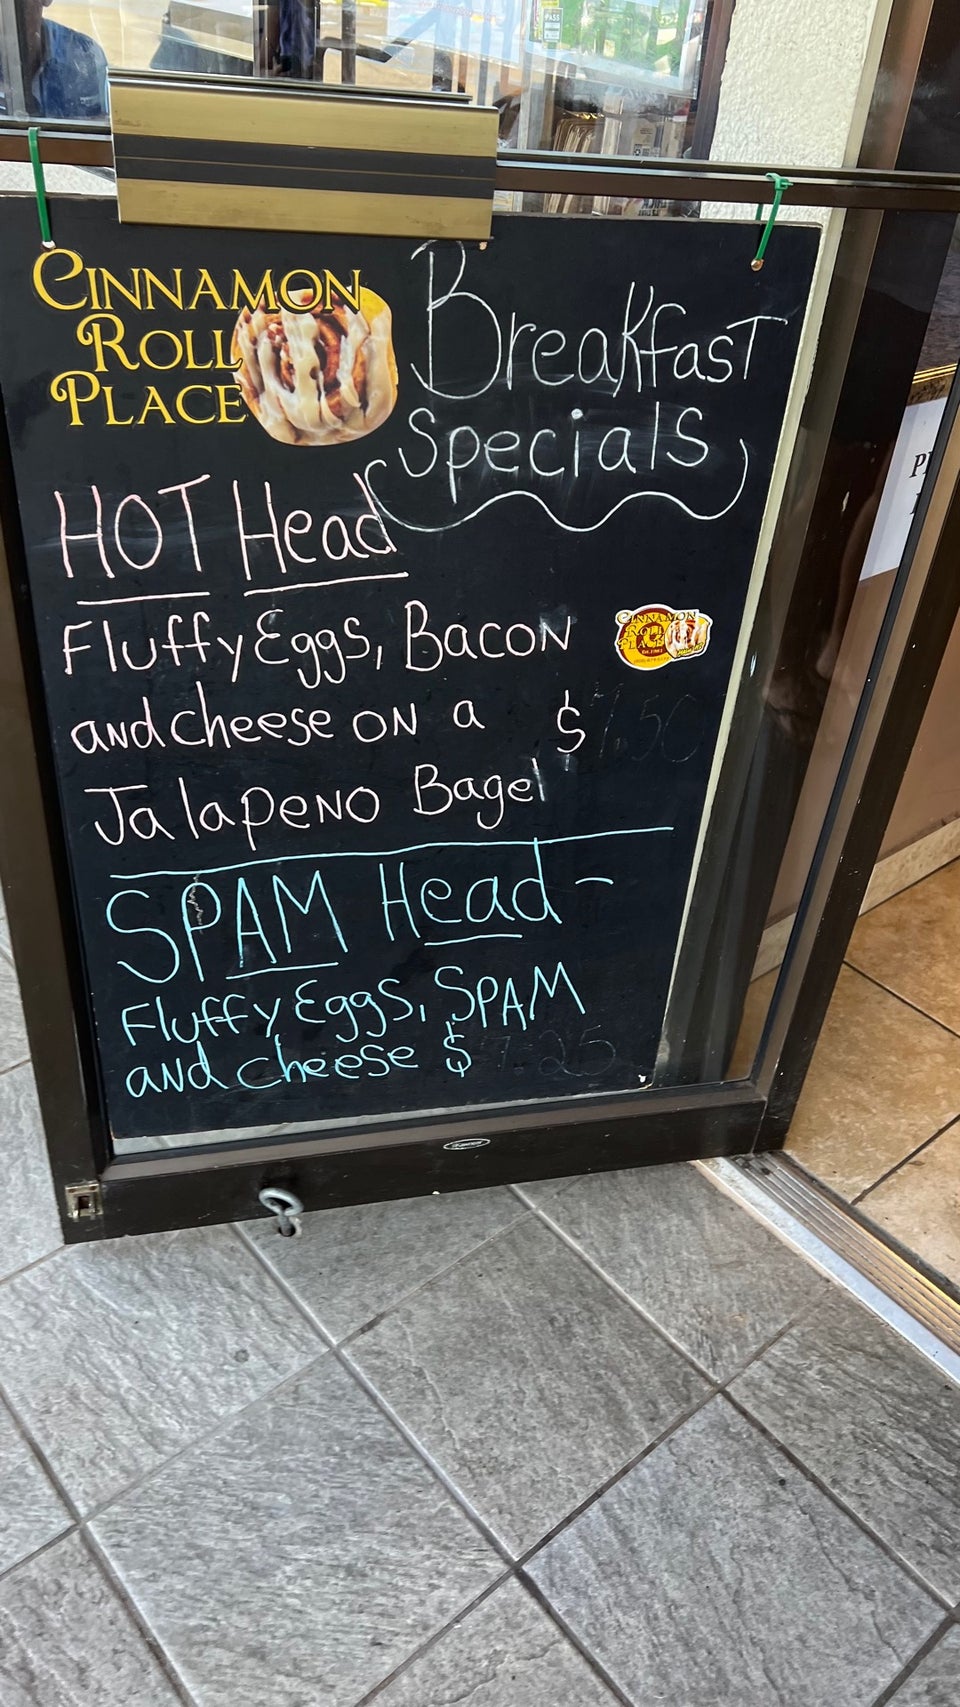 CINNAMON
ROLL
PLACE
Breakfast
Specials
HOT Head
Fluffy Eggs, Bacon
and cheese on a $ 7.50
Jalapeno Bagel
SPAM Head -
Fluffy Eggs, SPAM
and cheese $ 7.25
CINNAMON
ROLL
PLACE
PASS